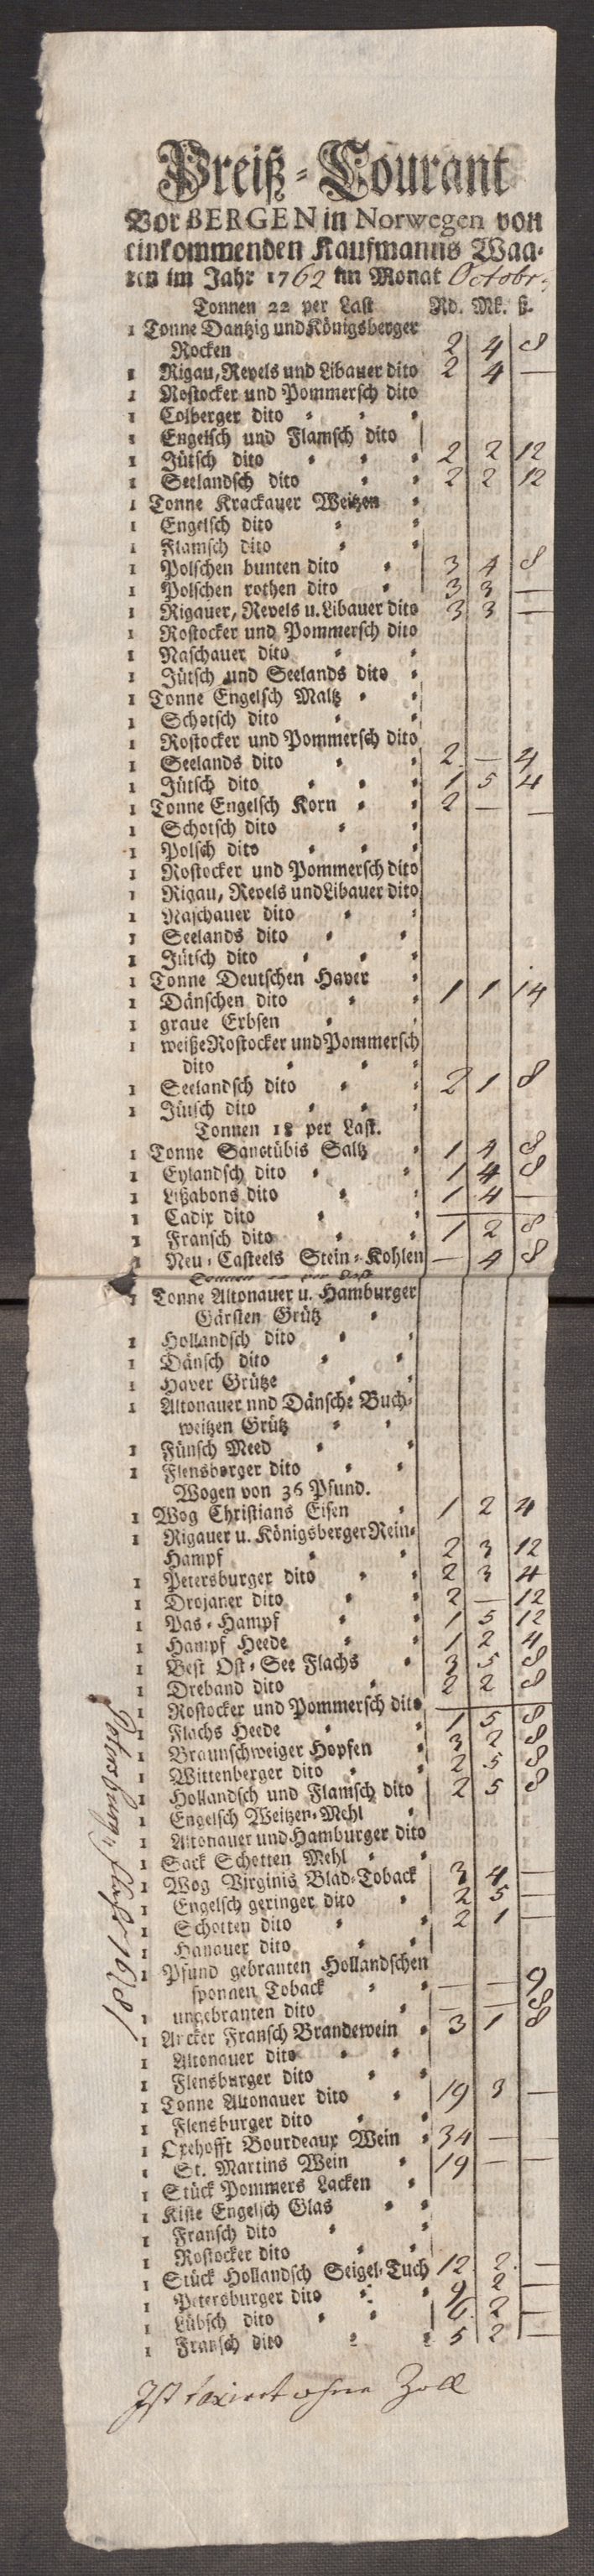 Preiß-Courant
Vor BERGEN in Norwegen von
einkommenden Kaufmanns Waa-
ren im Jahr 1762 im Monat Octobr:
Tonnen 22 per Last Rd. Mk. ß.
1 Tonne Dantzig und Königsberger
Rocken 2 4 8
1 Rigau, Revels und Libauer dito 2 4 —
1 Rostocker und Pommersch dito
1 Colberger dito
1 Engelsch und Flamsch dito
1 Jütsch dito 2 2 12
1 Seelandsch dito 2 2 12
1 Tonne Krackauer Weitzen
1 Engelsch dito
1 Flamsch dito
1 Polschen bunten dito 3 4 8
1 Polschen rothen dito 3 3 —
1 Rigauer, Revels u. Libauer dito 3 3 —
1 Rostocker und Pommersch dito
1 Naschauer dito
1 Jütsch und Seelands dito
1 Tonne Engelsch Maltz
1 Schotsch dito
1 Rostocker und Pommersch dito
1 Seelands dito 2 — 4
1 Jütsch dito 1 5 4
1 Tonne Engelsch Korn 2 — —
1 Schotsch dito
1 Polsch dito
1 Rostocker und Pommersch dito
1 Rigau, Revels und Libauer dito
1 Naschauer dito
1 Seelands dito
1 Jütsch dito
1 Tonne Deutschen Haver
1 Dänschen dito 1 1 14
1 graue Erbsen
1 weiße Rostocker und Pommersch
dito
1 Seelandsch dito 2 1 8
1 Jütsch dito
Tonnen 18 per Last.
1 Tonne Sanctübis Saltz 1 4 8
1 Eylandsch dito 1 4 8
1 Lißabons dito 1 4 —
1 Cadix dito —
1 Fransch dito 1 2 8
1 Neu-Casteels Stein-Kohlen — 4 8
1 Tonne Altonauer u. Hamburger
Gärsten Grütz
1 Hollandsch dito
1 Dänsch dito
1 Haver Grütze
1 Altonauer nnd Dänsche Buch-
weitzen Grütz
1 Fünsch Meed
1 Flensborger dito
Wogen von 36 Pfund.
1 Wog Christians Eisen 1 2 4
1 Rigauer u. Königsberger Rein-
Hampf 2 3 12
1 Petersburger dito 2 3 4
1 Drojaner dito 2 — 12
1 Pas-Hampf 1 5 12
1 Hampf Heede 1 2 4
1 Best Ost-See Flachs 3 5 8
1 Dreband dito 2 2 8
1 Rostocker und Pommersch dito —
1 Flachs Heede 1 5 8
1 Braunschweiger Hopfen 3 2 8
1 Wittenberger dito 2 5 8
1 Hollandsch und Flamsch dito 2 5 8
1 Engelsch Weitzen-Mehl
1 Altonauer und Hamburger dito
1 Sack Schotten Mehl
1 Wog Virginis Blad-Toback 3 4 —
1 Engelsch geringer dito 2 5 —
1 Schotten dito 2 1 —
1 Hanauer dito
1 Pfund gebranten Hollandschen
sponnen Toback — — 9
1 ungebranten dito — — 8
1 Ancker Fransch Brandewein 3 1 8
1 Altonauer dito
1 Flensburger dito
1 Tonne Altonauer dito 19 3 —
1 Flensburger dito
1 Oxehofft Bourdeaux Wein 34 — —
1 St. Martins Wein 19 — —
1 Stück Pommers Lacken
1 Kiste Engelsch Glas
1 Fransch dito
1 Rostocker dito
1 Stück Hollandsch Seigel-Tuch 12 2 —
1 Petersburger dito 9 2 —
1 Lübsch dito 6 2 —
1 Fransch dito 5 2 —
Ist taxirt ohne Zoll